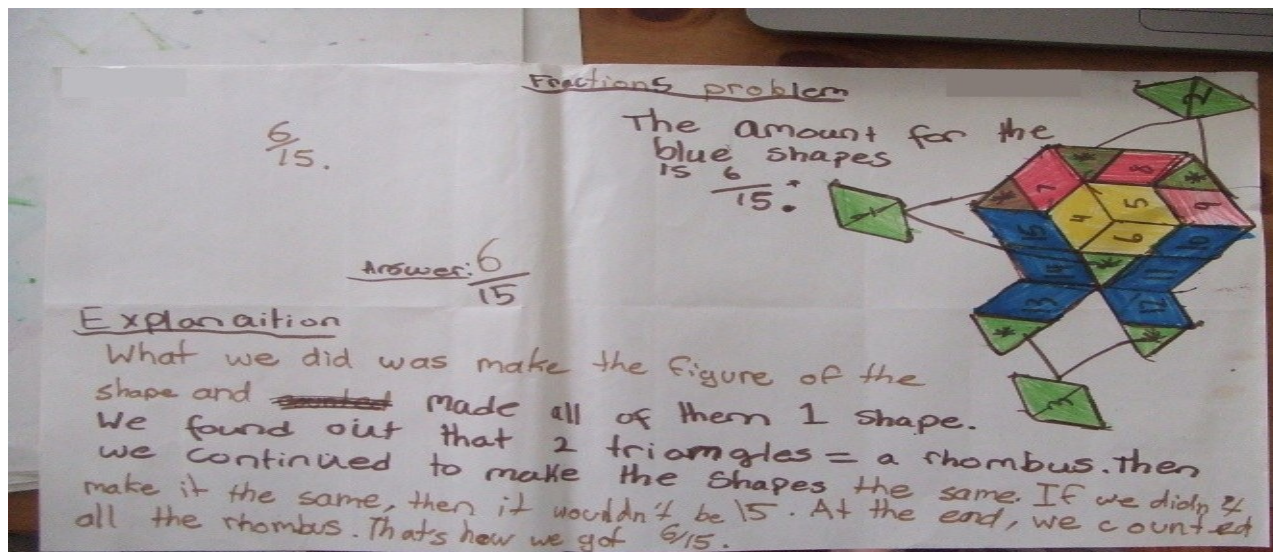 Fractions problem
6/15.
The amount for the
blue shapes
is 6/15:
Answer: 6/15
Explanaition
What we did was make the figure of the
shape and made all of them 1 shape.
We found out that 2 triamgles = a rhombus. Then
we continued to make the shapes the same. If we didn't
make it the same, then it wouldn't be 15. At the end, we counted
all the rhombus. That's how we got 6/15.
2
1
7
*
8
*
*
9
4
5
6
15
10
14
*
11
13
12
*
*
3